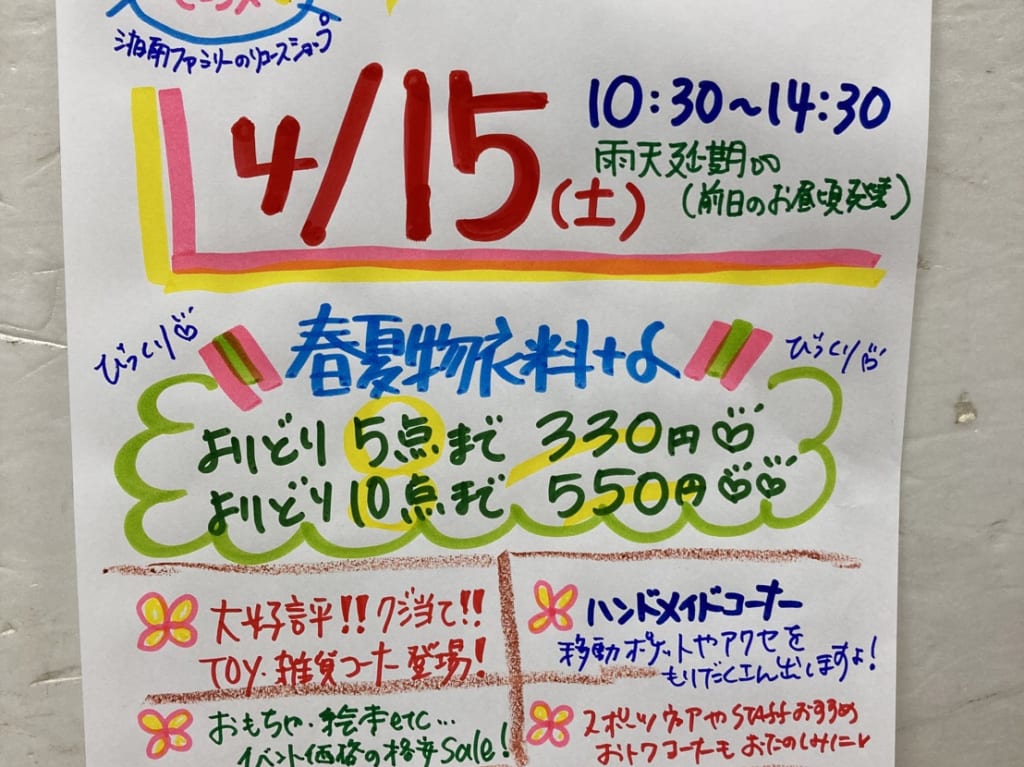 湘南ファミリーのリユースショップ
4/15(土)
10:30~14:30
雨天延期
(前日のお昼頃発表)
びっくり
春夏物衣料+α
びっくり
よりどり5点まで 330円
よりどり10点まで 550円
大好評!!クジ当て!!
TOY・雑貨コーナー登場!
ハンドメイドコーナー
移動ポケットやアクセを
もりだくさん出しますよ!
おもちゃ・絵本etc...
イベント価格の格安Sale!
スポーツウェアやSTAFFおすすめ
おトクコーナーもおたのしみに